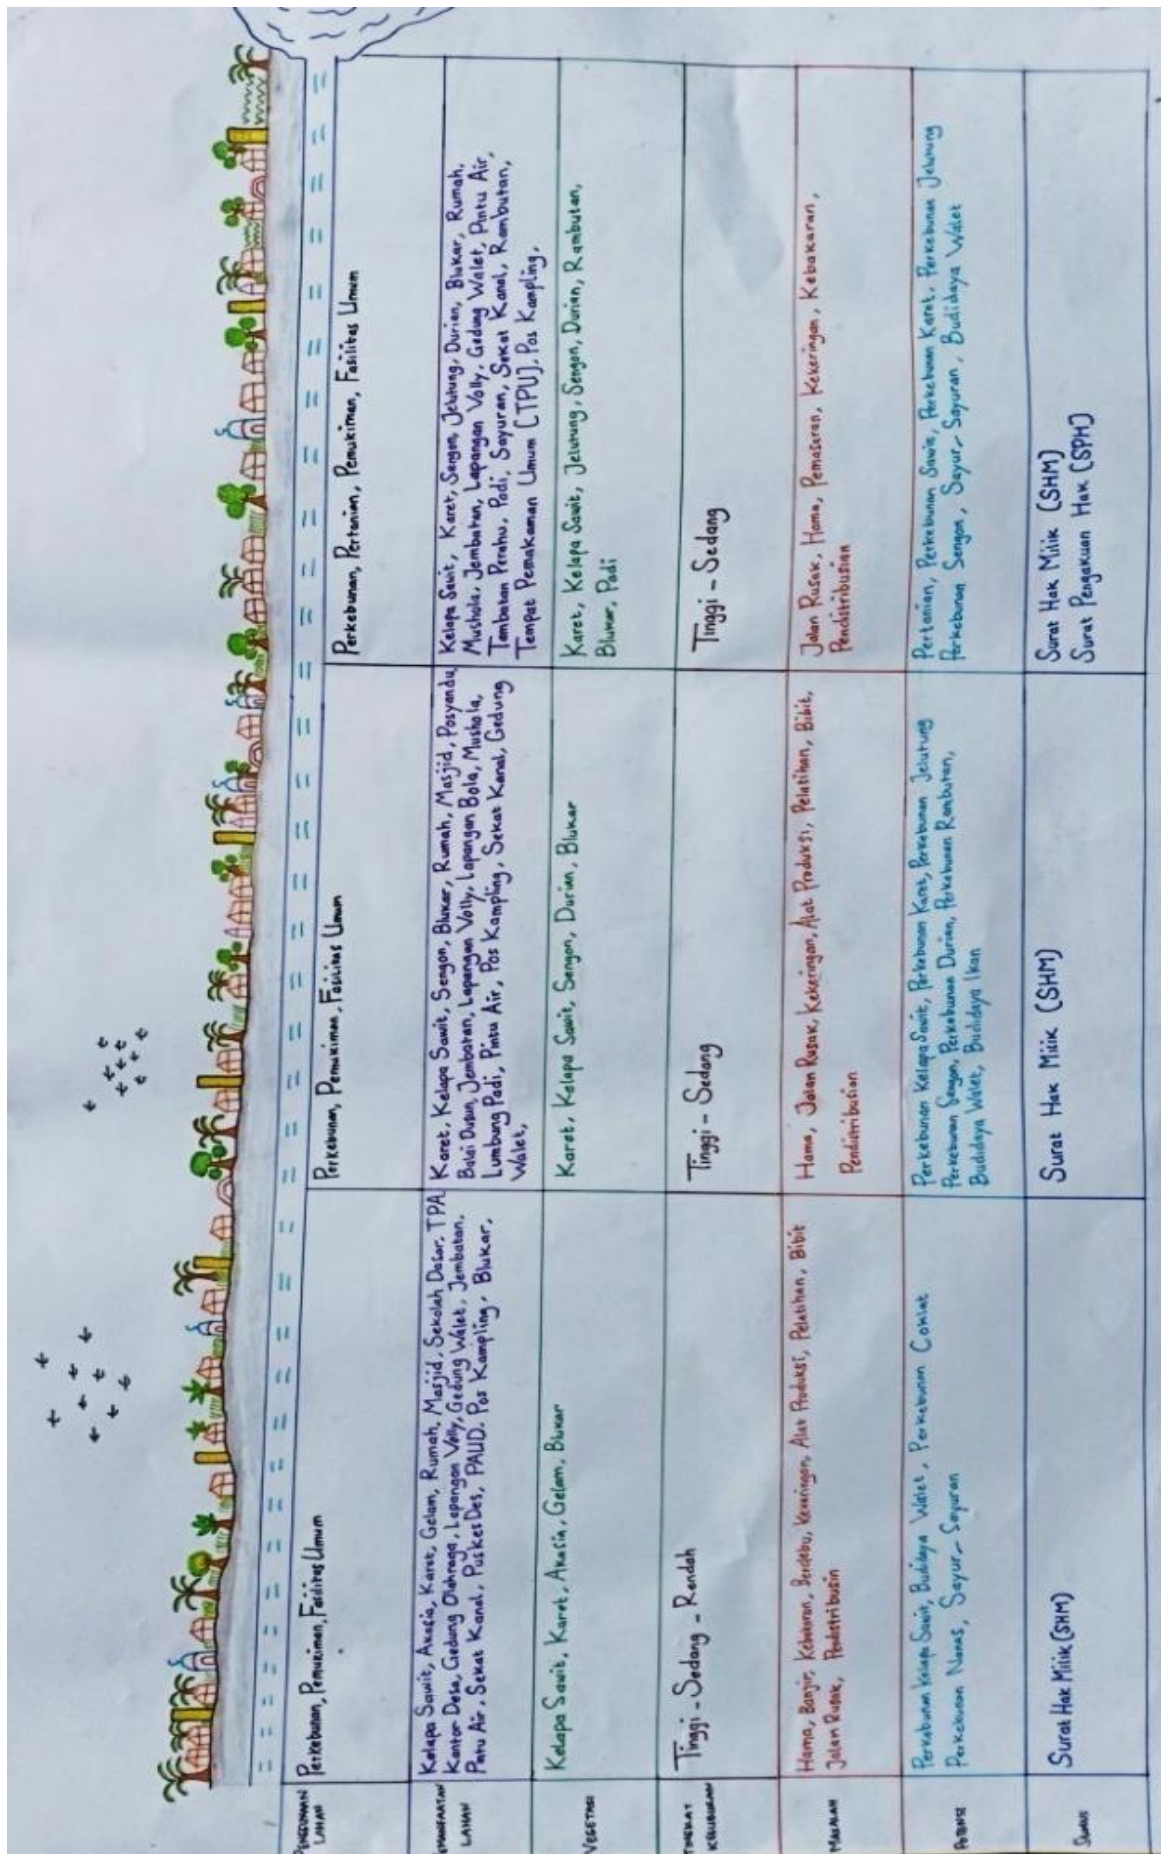 PENGGUNAAN
LAHAN
Perkebunan, Pemukiman, Fasilitas Umum
Perkebunan, Pemukiman, Fasilitas Umum
Perkebunan, Pertanian, Pemukiman, Fasilitas Umum
PEMANFAATAN
LAHAN
Kelapa Sawit, Akasia, Karet, Gelam, Rumah, Masjid, Sekolah Dasar, TPA
Kantor Desa, Gedung Olahraga, Lapangan Volly, Gedung Walet, Jembatan,
Pintu Air, Sekat Kanal, PuskesDes, PAUD, Pos Kampling, Blukar,
Karet, Kelapa Sawit, Sengon, Blukar, Rumah, Masjid, Posyandu,
Balai Dusun, Jembatan, Lapangan Volly, Lapangan Bola, Mushola,
Lumbung Padi, Pintu Air, Pos Kampling, Sekat Kanal, Gedung
Walet,
Kelapa Sawit, Karet, Sengon, Jelutung, Durian, Blukar, Rumah,
Mushola, Jembatan, Lapangan Volly, Gedung Walet, Pintu Air,
Tambatan Perahu, Padi, Sayuran, Sekat Kanal, Rambutan,
Tempat Pemakaman Umum [TPU], Pos Kampling,
VEGETASI
Kelapa Sawit, Karet, Akasia, Gelam, Blukar
Karet, Kelapa Sawit, Sengon, Durian, Blukar
Karet, Kelapa Sawit, Jelutung, Sengon, Durian, Rambutan,
Blukar, Padi
TINGKAT
KESUBURAN
Tinggi - Sedang - Rendah
Tinggi - Sedang
Tinggi - Sedang
MASALAH
Hama, Banjir, Kebakaran, Berdebu, Kekeringan, Alat Produksi, Pelatihan, Bibit
Jalan Rusak, Pendistribusin
Hama, Jalan Rusak, Kekeringan, Alat Produksi, Pelatihan, Bibit,
Pendistribusian
Jalan Rusak, Hama, Pemasaran, Kekeringan, Kebakaran,
Pendistribusian
POTENSI
Perkebunan Kelapa Sawit, Budidaya Walet, Perkebunan Coklat
Perkebunan Nanas, Sayur-Sayuran
Perkebunan Kelapa Sawit, Perkebunan Karet, Perkebunan Jelutung
Perkebunan Sengon, Perkebunan Durian, Perkebunan Rambutan,
Budidaya Walet, Budidaya Ikan
Pertanian, Perkebunan Sawit, Perkebunan Karet, Perkebunan Jelutung
Perkebunan Sengon, Sayur-Sayuran, Budidaya Walet
STATUS
Surat Hak Milik (SHM)
Surat Hak Milik (SHM)
Surat Hak Milik (SHM)
Surat Pengakuan Hak (SPH)